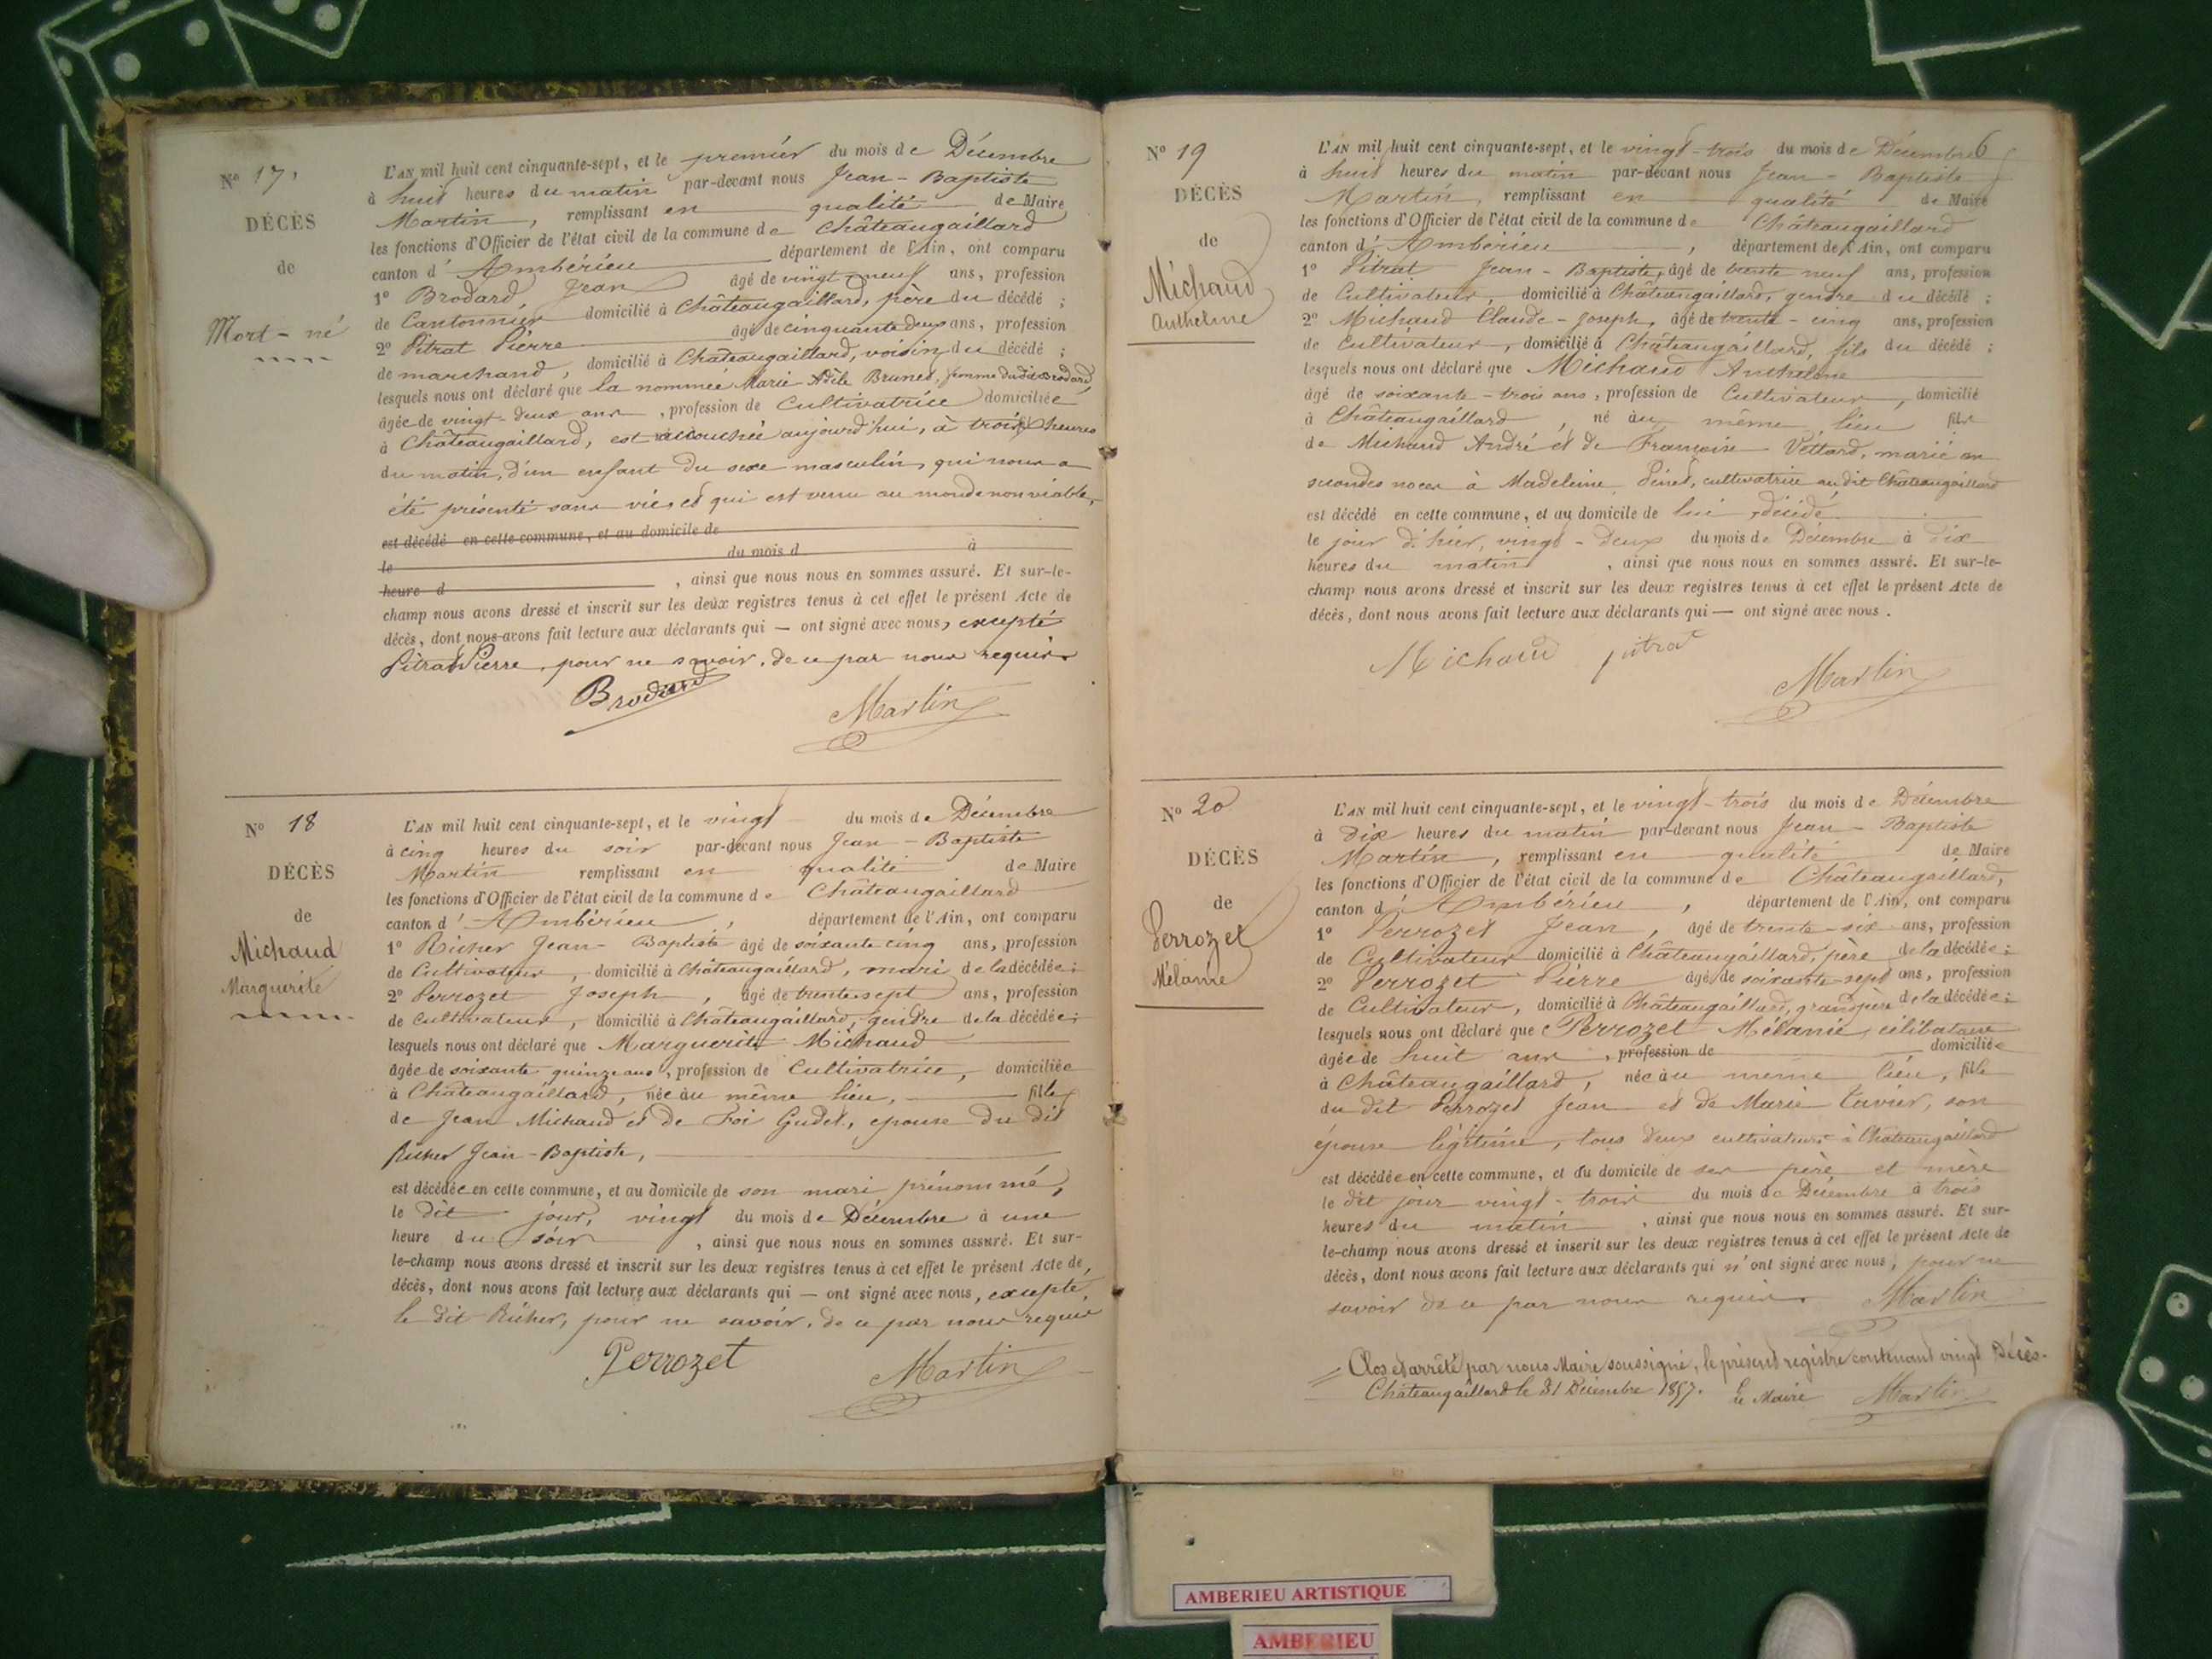 N° 17.
DÉCÈS
de
Mort-né
L'AN mil huit cent cinquante-sept, et le premier du mois de Décembre
à huit heures du matin par-devant nous Jean-Baptiste
Martin, remplissant en qualité de Maire
les fonctions d'Officier de l'état civil de la commune de Châteaugaillard
canton d'Ambérieu département de l'Ain, ont comparu
1° Brodard, Jean âgé de vingt neuf ans, profession
de Cantonnier domicilié à Châteaugaillard, père du décédé ;
2° Pitrat Pierre âgé de cinquante deux ans, profession
de marchand, domicilié à Châteaugaillard, voisin du décédé ;
lesquels nous ont déclaré que la nommée Marie Adèle Brunet, femme du dit Brodard,
âgée de vingt-deux ans, profession de Cultivatrice domiciliée
à Châteaugaillard, est accouchée aujourd'hui, à trois heures
du matin, d'un enfant du sexe masculin, qui nous a
été présenté sans vie, et qui est venu au monde non viable,
est décédé en cette commune, et au domicile de
le du mois d à
heure d , ainsi que nous nous en sommes assuré. Et sur-le-
champ nous avons dressé et inscrit sur les deux registres tenus à cet effet le présent Acte de
décès, dont nous avons fait lecture aux déclarants qui — ont signé avec nous, excepté
Pitrat Pierre, pour ne savoir, de ce par nous requis
Brodard Martin
N° 18
DÉCÈS
de
Michaud
Marguerite
L'AN mil huit cent cinquante-sept, et le vingt du mois de Décembre
à cinq heures du soir par-devant nous Jean-Baptiste
Martin remplissant en qualité de Maire
les fonctions d'Officier de l'état civil de la commune de Châteaugaillard
canton d'Ambérieu, département de l'Ain, ont comparu
1° Richer Jean-Baptiste âgé de soixante cinq ans, profession
de Cultivateur, domicilié à Châteaugaillard, mari de la décédée ;
2° Perrozet Joseph, âgé de trente sept ans, profession
de Cultivateur, domicilié à Châteaugaillard, gendre de la décédée ;
lesquels nous ont déclaré que Marguerite Michaud
âgée de soixante quinze ans, profession de Cultivatrice, domiciliée
à Châteaugaillard, née au même lieu, fille
de Jean Michaud et de Foi Gudet, épouse du dit
Richer Jean-Baptiste,
est décédée en cette commune, et au domicile de son mari prénommé,
le dit jour, vingt du mois de Décembre à une
heure du soir, ainsi que nous nous en sommes assuré. Et sur-
le-champ nous avons dressé et inscrit sur les deux registres tenus à cet effet le présent Acte de
décès, dont nous avons fait lecture aux déclarants qui — ont signé avec nous, excepté
le dit Richer, pour ne savoir, de ce par nous requis
Perrozet Martin
6
N° 19
DÉCÈS
de
Michaud
Anthelme
L'AN mil huit cent cinquante-sept, et le vingt-trois du mois de Décembre
à huit heures du matin par-devant nous Jean-Baptiste
Martin, remplissant en qualité de Maire
les fonctions d'Officier de l'état civil de la commune de Châteaugaillard
canton d'Ambérieu, département de l'Ain, ont comparu
1° Pitrat Jean-Baptiste, âgé de trente neuf ans, profession
de Cultivateur, domicilié à Châteaugaillard, gendre du décédé ;
2° Michaud Claude-Joseph, âgé de trente-cinq ans, profession
de Cultivateur, domicilié à Châteaugaillard, fils du décédé ;
lesquels nous ont déclaré que Michaud Anthelme
âgé de soixante-trois ans, profession de Cultivateur, domicilié
à Châteaugaillard, né au même lieu fils
de Michaud André et de Françoise Vettard, marié en
secondes noces à Madeleine, cultivatrice au dit Châteaugaillard
est décédé en cette commune, et au domicile de lui, décédé
le jour d'hier, vingt-deux du mois de Décembre à dix
heures du matin, ainsi que nous nous en sommes assuré. Et sur-le-
champ nous avons dressé et inscrit sur les deux registres tenus à cet effet le présent Acte de
décès, dont nous avons fait lecture aux déclarants qui — ont signé avec nous.
Michaud pitrat
Martin
N° 20
DÉCÈS
de
Perrozet
Mélanie
L'AN mil huit cent cinquante-sept, et le vingt-trois du mois de Décembre
à dix heures du matin par-devant nous Jean-Baptiste
Martin, remplissant en qualité de Maire
les fonctions d'Officier de l'état civil de la commune de Châteaugaillard,
canton d'Ambérieu, département de l'Ain, ont comparu
1° Perrozet Jean, âgé de trente-six ans, profession
de Cultivateur domicilié à Châteaugaillard, père de la décédée ;
2° Perrozet Pierre âgé de soixante-sept ans, profession
de Cultivateur, domicilié à Châteaugaillard, grand père de la décédée ;
lesquels nous ont déclaré que Perrozet Mélanie, célibataire
âgée de huit ans, profession de domiciliée
à Châteaugaillard, née au même lieu, fille
du dit Perrozet Jean et de Marie Tavier, son
épouse légitime, tous deux cultivateurs à Châteaugaillard
est décédée en cette commune, et au domicile de ses père et mère
le dit jour vingt-trois du mois de Décembre à trois
heures du matin, ainsi que nous nous en sommes assuré. Et sur-
le-champ nous avons dressé et inscrit sur les deux registres tenus à cet effet le présent Acte de
décès, dont nous avons fait lecture aux déclarants qui n'ont signé avec nous, pour ne
savoir de ce par nous requis. Martin
Clos et arrêté par nous Maire soussigné, le présent registre contenant vingt Décès.
Châteaugaillard le 31 Décembre 1857. Le Maire Martin
AMBERIEU ARTISTIQUE
AMBERIEU